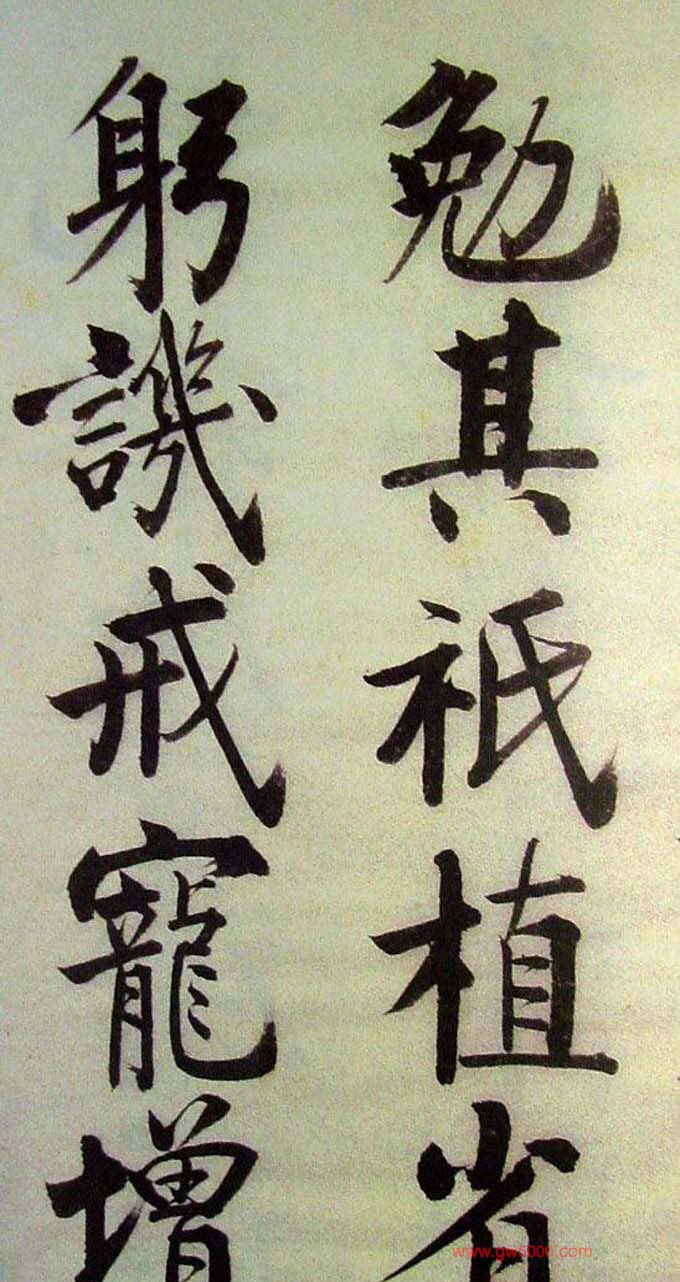 勉其祇植省
躬譏戒寵增
www.gw5000.com